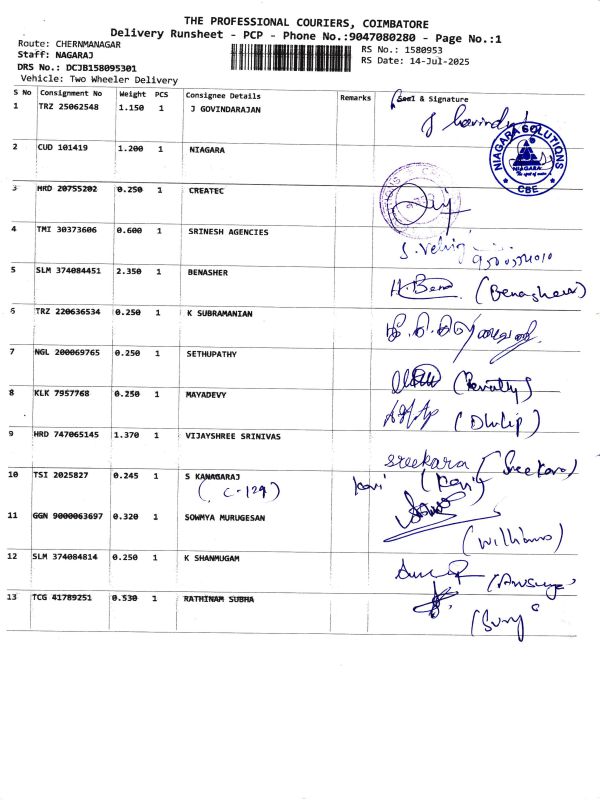 THE PROFESSIONAL COURIERS, COIMBATORE
Delivery Runsheet - PCP - Phone No.:9047080280 - Page No.:1
Route: CHERNMANAGAR
RS No.: 1580953
Staff: NAGARAJ
RS Date: 14-Jul-2025
DRS No.: DCJB158095301
Vehicle: Two Wheeler Delivery
S No Consignment No Weight PCS Consignee Details Remarks Seal & Signature
1 TRZ 25062548 1.150 1 J GOVINDARAJAN
2 CUD 101419 1.200 1 NIAGARA NIAGARA SOLUTIONS NIAGARA CBE
3 HRD 20755202 0.250 1 CREATEC
4 TMI 30373606 0.600 1 SRINESH AGENCIES
5 SLM 374084451 2.350 1 BENASHER H. Ben (Benasher)
6 TRZ 220636534 0.250 1 K SUBRAMANIAN
7 NGL 200069765 0.250 1 SETHUPATHY
8 KLK 7957768 0.250 1 MAYADEVY (Dhilip)
9 HRD 747065145 1.370 1 VIJAYSHREE SRINIVAS sreekara (Sreekara)
10 TSI 2025827 0.245 1 S KANAGARAJ kavi (kavi)
(C-129)
11 GGN 9000063697 0.320 1 SOWMYA MURUGESAN
(williams)
12 SLM 374084814 0.250 1 K SHANMUGAM
13 TCG 41789251 0.530 1 RATHINAM SUBHA